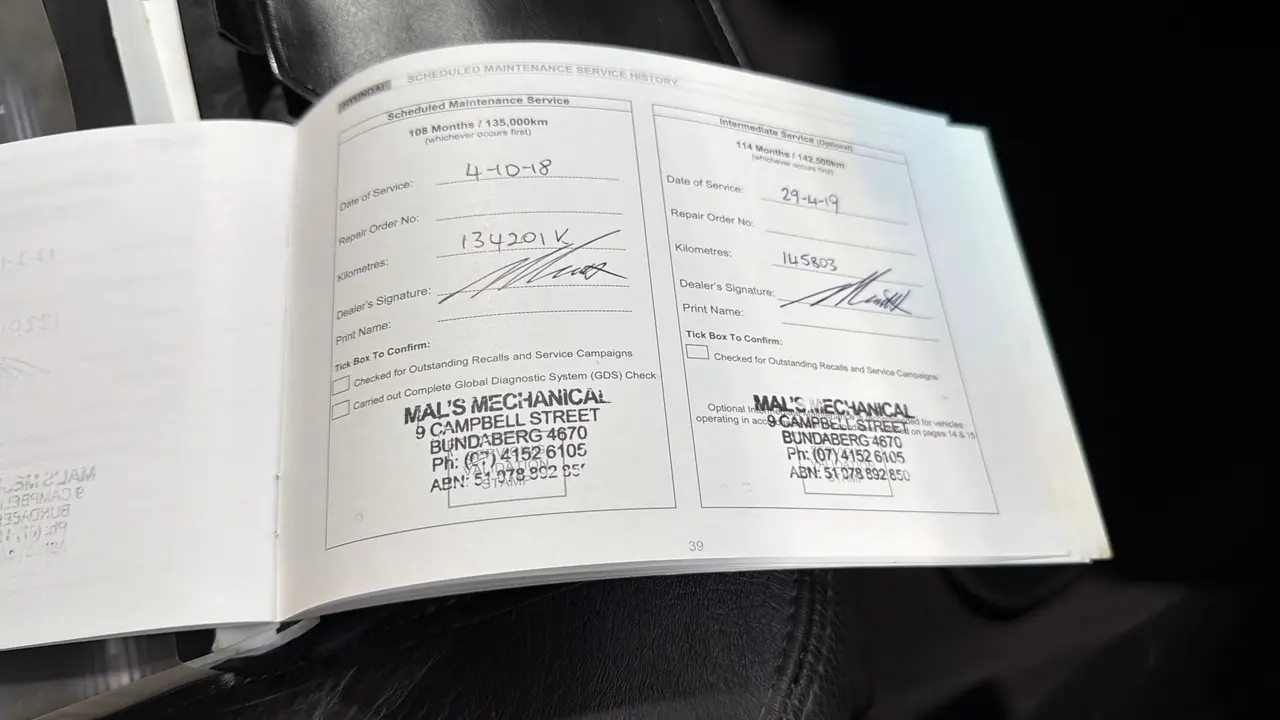 HYUNDAI SCHEDULED MAINTENANCE SERVICE HISTORY
Scheduled Maintenance Service
108 Months / 135,000km
(whichever occurs first)
Date of Service: 4-10-18
Repair Order No:
Kilometres: 134201K
Dealer's Signature:
Print Name:
Tick Box To Confirm:
Checked for Outstanding Recalls and Service Campaigns
Carried out Complete Global Diagnostic System (GDS) Check
MAL'S MECHANICAL
9 CAMPBELL STREET
BUNDABERG 4670
Ph: (07) 4152 6105
ABN: 51 078 892 85
VALIDATION
STAMP
Intermediate Service (Optional)
114 Months / 142,500km
(whichever occurs first)
Date of Service: 29-4-19
Repair Order No:
Kilometres: 145803
Dealer's Signature:
Print Name:
Tick Box To Confirm:
Checked for Outstanding Recalls and Service Campaigns
Optional for vehicles
operating in on pages 14 & 15
MAL'S MECHANICAL
9 CAMPBELL STREET
BUNDABERG 4670
Ph: (07) 4152 6105
ABN: 51 078 892 850
STAMP
39